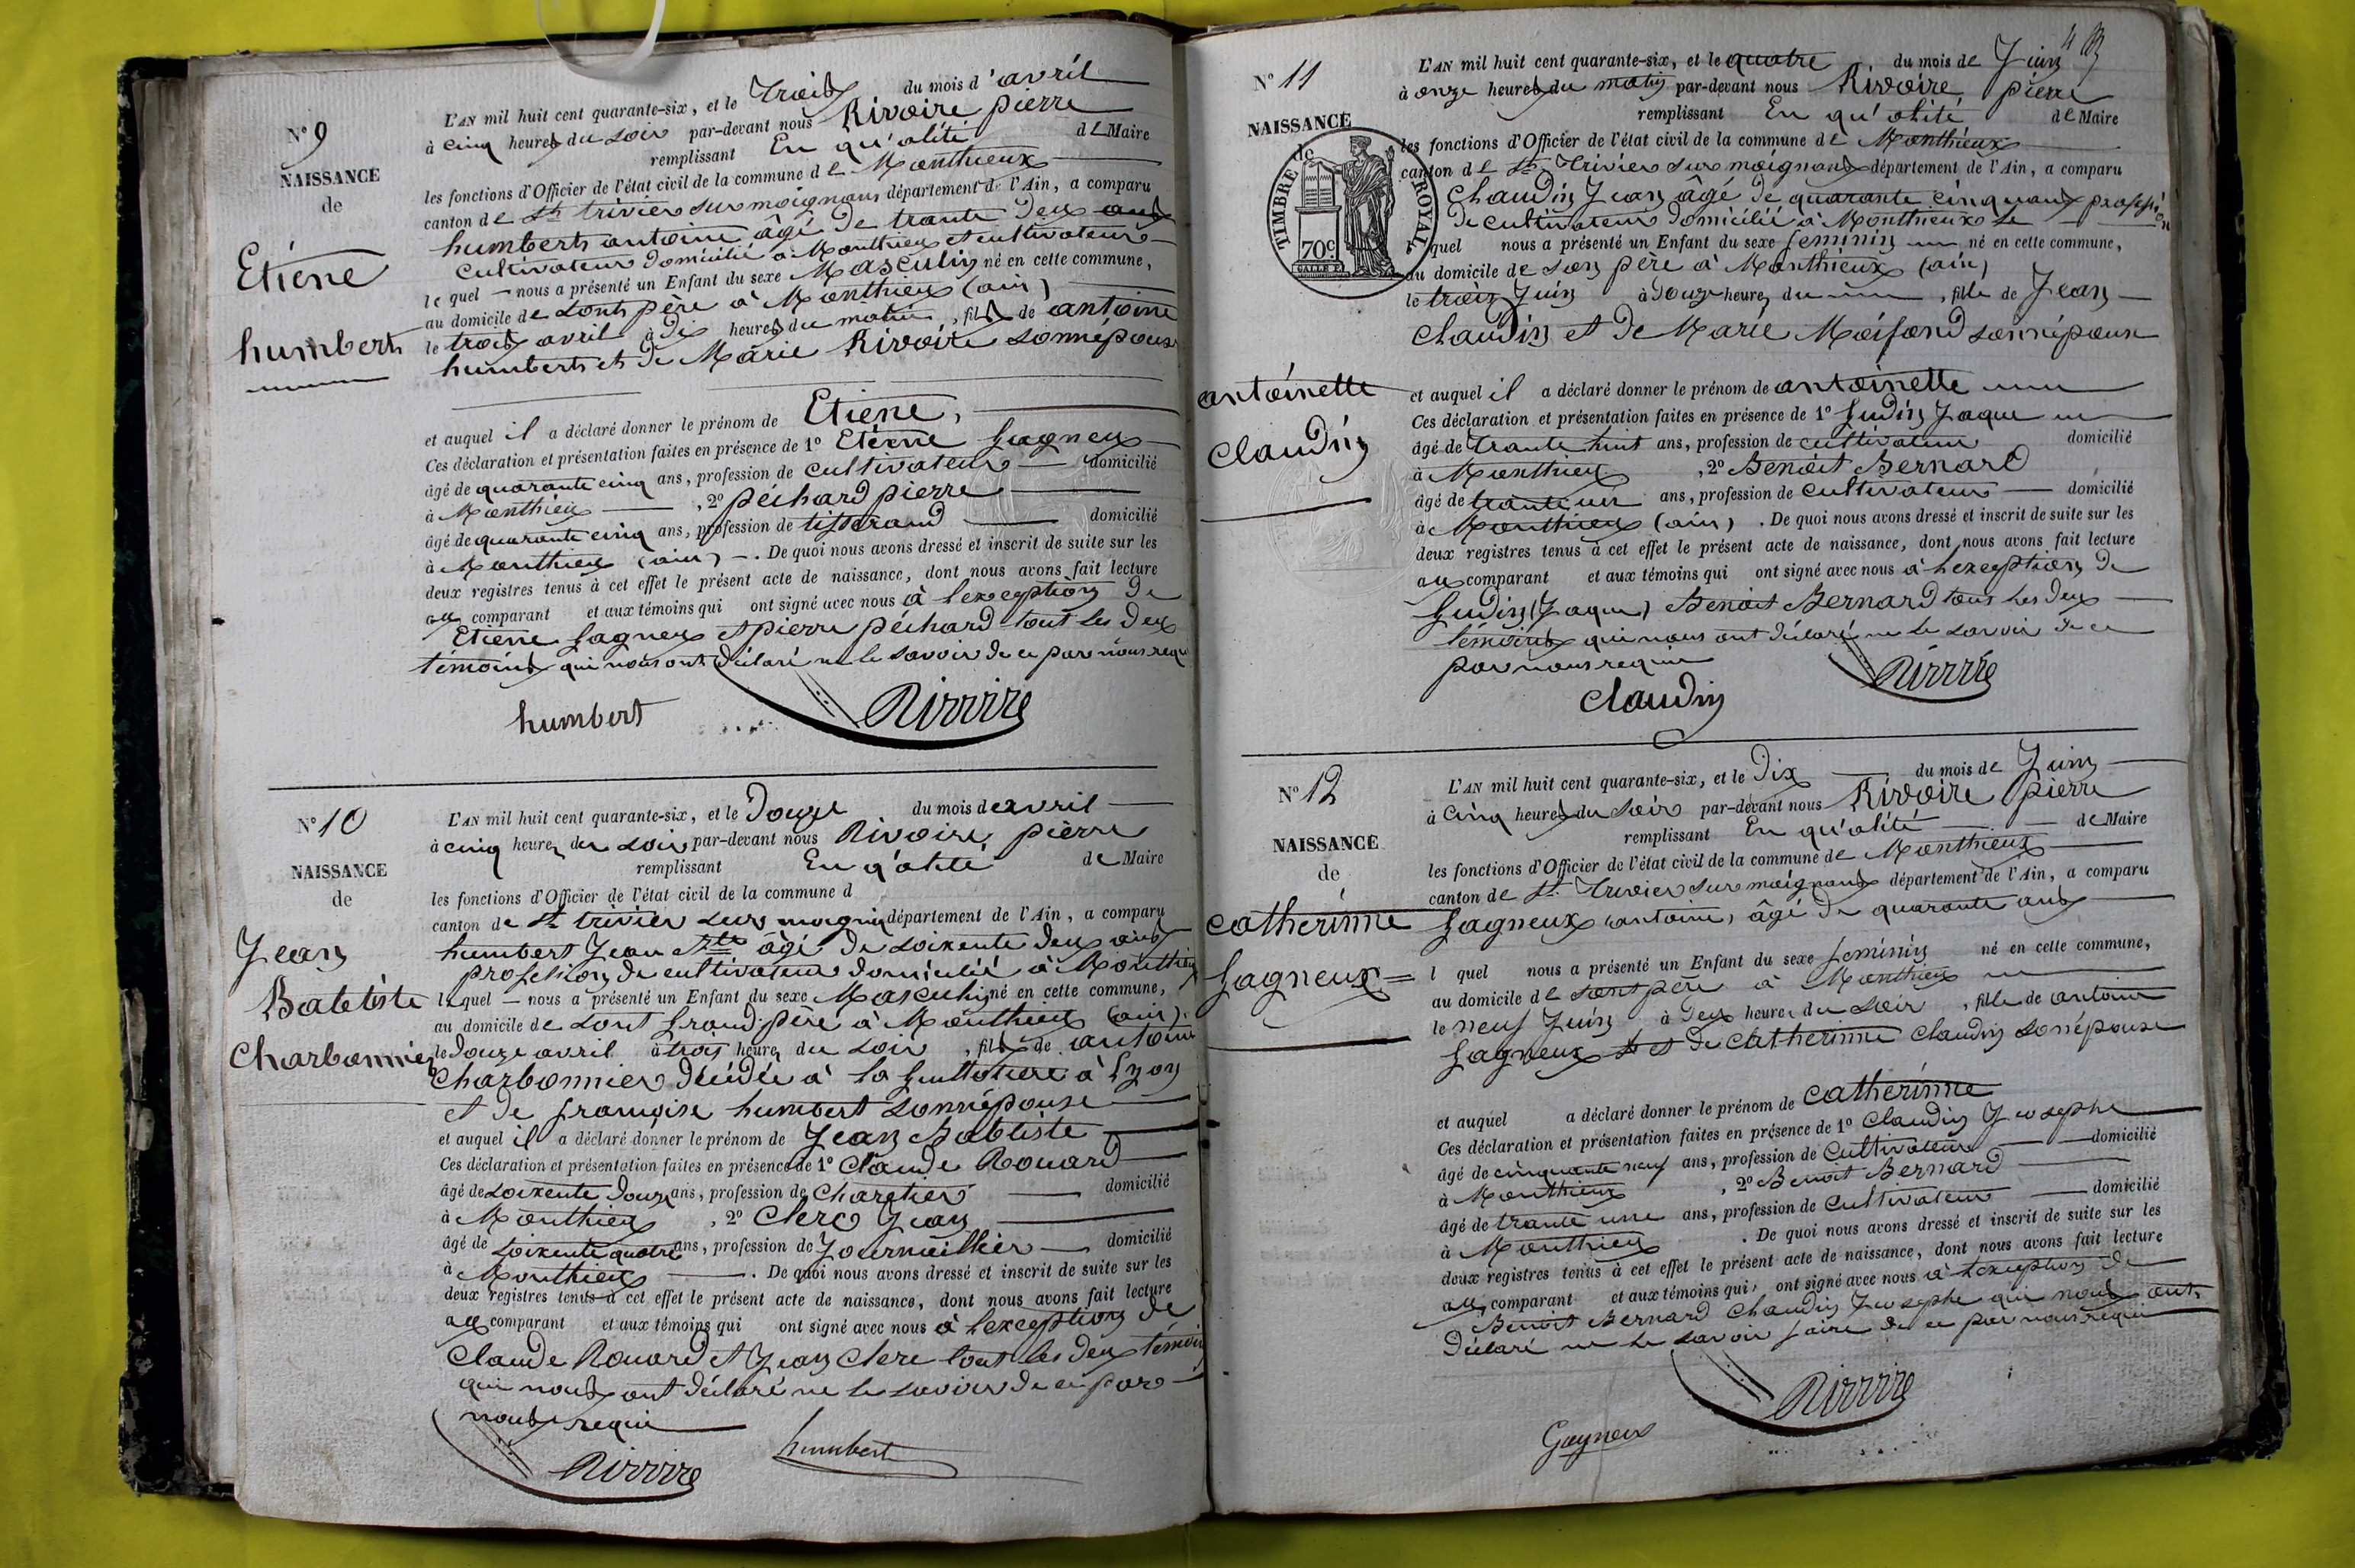 N° 9
NAISSANCE
de
Etiéne
humbert
L'AN mil huit cent quarante-six, et le Trois du mois d'avril
à cinq heures du soir par-devant nous Rivoire pierre
remplissant En qu'alité de Maire
les fonctions d'Officier de l'état civil de la commune de Monthieux
canton de St trivier sur moignans département de l'Ain, a comparu
humbert antoine âgé de trante deux ans
cultivateur domicilié à Monthieux et cultivateur
le quel nous a présenté un Enfant du sexe Masculin né en cette commune,
au domicile de sont père à Monthieux (ain)
le trois avril à dix heures du matin, fils de antoine
humbert et de Marie Rivoire sonnépouse
et auquel il a déclaré donner le prénom de Etiene,
Ces déclaration et présentation faites en présence de 1° Etiéne gagneux
âgé de quarante cinq ans, profession de cultivateur domicilié
à Monthieux, 2° péchard pierre
âgé de quarante cinq ans, profession de tisserand domicilié
à Monthieux (ain). De quoi nous avons dressé et inscrit de suite sur les
deux registres tenus à cet effet le présent acte de naissance, dont nous avons fait lecture
au comparant et aux témoins qui ont signé avec nous à l'exception de
Etiene gagneux et pierre péchard tout les deux
témoins qui nous ont déclaré ne le savoir de ce par nous requi
humbert Rivoire
N° 10
NAISSANCE
de
Jean
Batetiste
Charbonnier
L'AN mil huit cent quarante-six, et le Douze du mois de avril
à cinq heures du soir par-devant nous Rivoire pierre
remplissant En q'alité de Maire
les fonctions d'Officier de l'état civil de la commune d
canton de St trivier sur moignans département de l'Ain, a comparu
humbert Jean Bte âgé de soixente deux ans
profession de cultivateur domicilié à Monthieux
le quel nous a présenté un Enfant du sexe Masculin né en cette commune,
au domicile de sont grand père à Monthieux (ain).
le douze avril à trois heures du soir, fils de antoine
Charbonnier décédée à la guillotiere à Lyon
et de françoise humbert sonnépouse
et auquel il a déclaré donner le prénom de Jean Batetiste
Ces déclaration et présentation faites en présence de 1° Claude Rouard
âgé de soixente douze ans, profession de Charetier domicilié
à Monthieux, 2° Clerc Jean
âgé de soixente quatre ans, profession de Journaillier domicilié
à Monthieux. De quoi nous avons dressé et inscrit de suite sur les
deux registres tenus à cet effet le présent acte de naissance, dont nous avons fait lecture
au comparant et aux témoins qui ont signé avec nous à l'exception de
Claude Rouard et Jean Clerc tout les deux témoin
qui nous ont déclaré ne le savoir de ce par
nous requi
Rivoire humbert
N° 11
NAISSANCE
de
TIMBRE ROYAL
70c
antoinette
Claudin
L'AN mil huit cent quarante-six, et le quatre du mois de Juin
à onze heures du matin par-devant nous Rivoire pierre
remplissant En qu'alité de Maire
les fonctions d'Officier de l'état civil de la commune de Monthieux
canton de St Trivier sur moignans département de l'Ain, a comparu
Claudin Jean âgé de quarante cinq ans profession
de cultivateur domicilié à Monthieux le
quel nous a présenté un Enfant du sexe feminin né en cette commune,
au domicile de son père à Monthieux (ain)
le trois Juin à douze heures du, fille de Jean
Claudin et de Marie Moifond sonnépouse
et auquel il a déclaré donner le prénom de antoinette
Ces déclaration et présentation faites en présence de 1° Gudin Jaque
âgé de trante huit ans, profession de cultivateur domicilié
à Monthieux, 2° Benoit Bernard
âgé de trante un ans, profession de cultivateur domicilié
à Monthieux (ain). De quoi nous avons dressé et inscrit de suite sur les
deux registres tenus à cet effet le présent acte de naissance, dont nous avons fait lecture
au comparant et aux témoins qui ont signé avec nous à l'exception de
Gudin (Jaque) Benoit Bernard tous les deux
témoins qui nous ont déclaré ne le savoir de ce
par nous requi
Claudin Rivoire
N° 12
NAISSANCE
de
catherinne
gagneux
L'AN mil huit cent quarante-six, et le Dix du mois de Juin
à cinq heures du soir par-devant nous Rivoire pierre
remplissant En qu'alité de Maire
les fonctions d'Officier de l'état civil de la commune de Monthieux
canton de St Trivier sur moignans département de l'Ain, a comparu
gagneux (antoine) âgé de quarante ans
l quel nous a présenté un Enfant du sexe feminin né en cette commune,
au domicile de sont père à Monthieux
le neuf Juin à deux heures du soir, fille de antoine
gagneux et de catherinne Claudin sonépouse
et auquel a déclaré donner le prénom de catherinne
Ces déclaration et présentation faites en présence de 1° Claudin Jeosephe
âgé de cinquante neuf ans, profession de Cultivateur domicilié
à Monthieux, 2° Benoit Bernard
âgé de trante une ans, profession de Cultivateur domicilié
à Monthieux. De quoi nous avons dressé et inscrit de suite sur les
deux registres tenus à cet effet le présent acte de naissance, dont nous avons fait lecture
au comparant et aux témoins qui ont signé avec nous à l'exception de
Benoit Bernard Claudin Jeosephe qui nous ont
déclaré ne le savoir faire de ce par nous requi
Rivoire
Gagneux